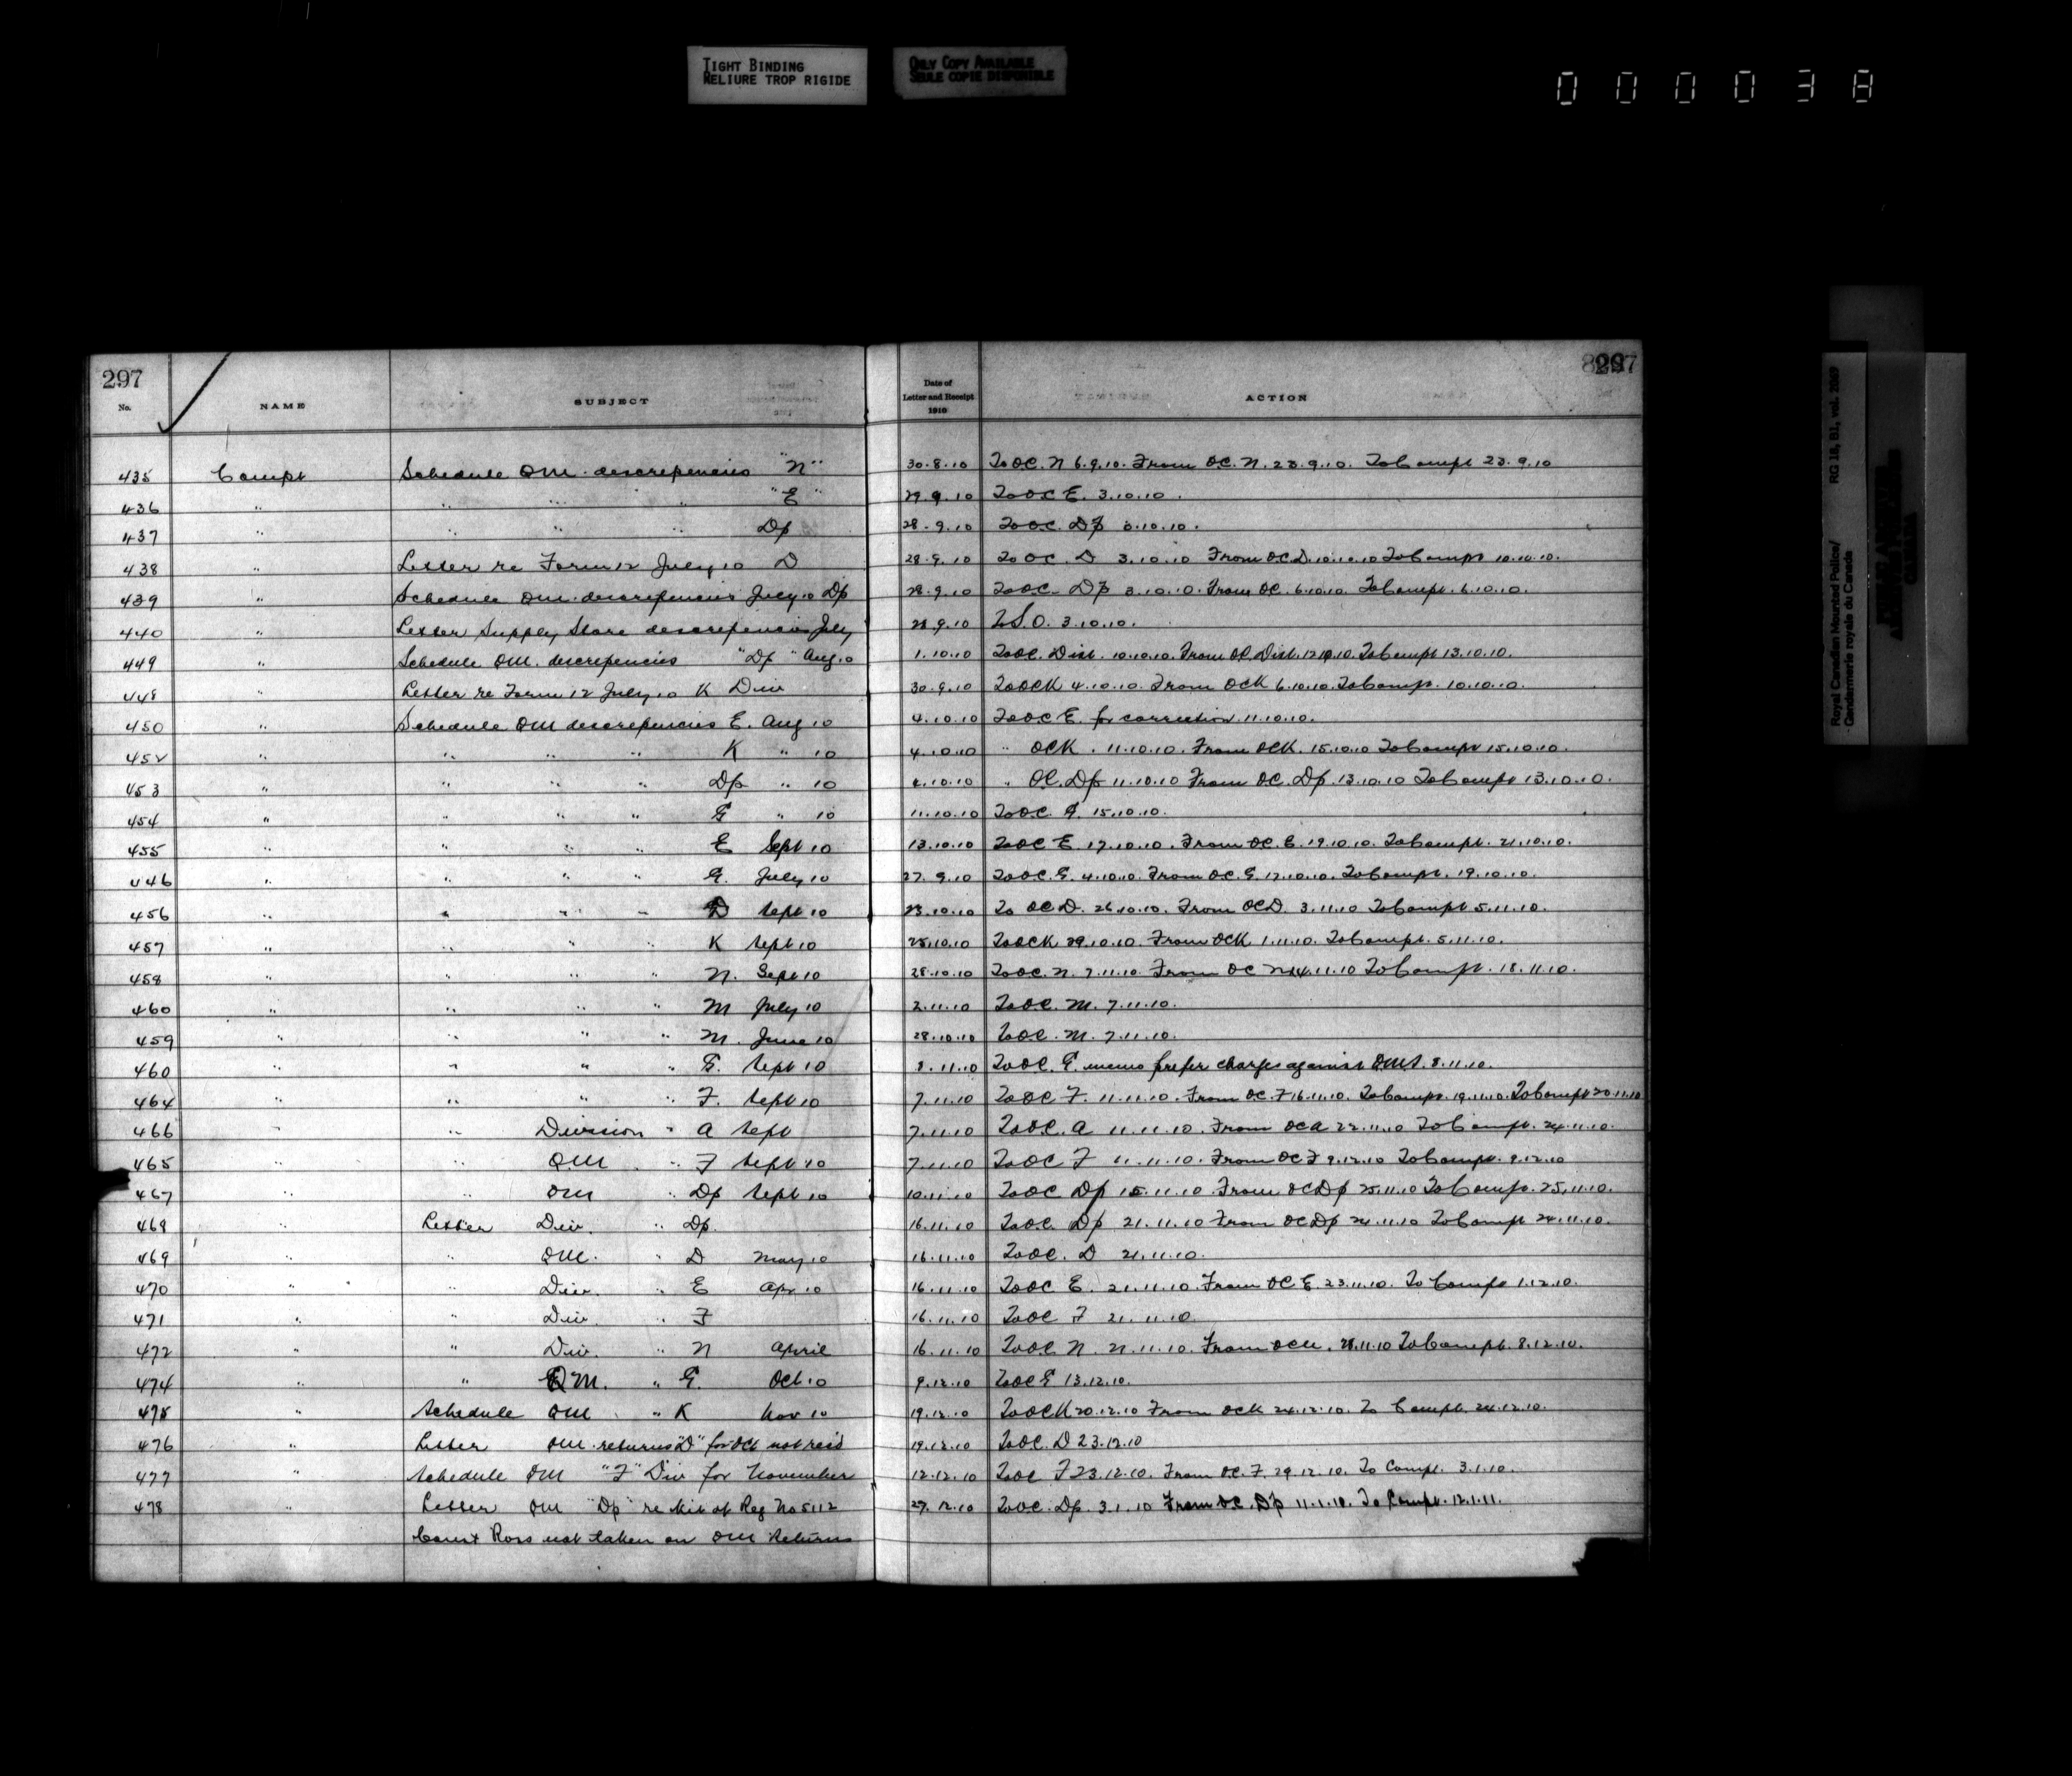 TIGHT BINDING
RELIURE TROP RIGIDE
ONLY COPY AVAILABLE
SEULE COPIE DISPONIBLE
000038
Royal Canadian Mounted Police/ RG 18, B1, vol. 2069
Gendarmerie royale du Canada
297 297
No. NAME SUBJECT Date of Letter and Receipt 1910 ACTION
435 Compt Schedule QM. descrepencies "N" 30.8.10 To OC. N 6.9.10. From OC. N. 23.9.10. To Compt 23.9.10
436 " " " " "E" 29.9.10 To OC E. 3.10.10.
437 " " " " Dp 28.9.10 To OC. Dp 3.10.10.
438 " Letter re Form 12 July 10 D 28.9.10 To OC. D 3.10.10 From OC. D. 10.10.10 To Compt 10.10.10.
439 " Schedule QM. descrepencies July 10 Dp 28.9.10 To OC. Dp 3.10.10. From OC. 6.10.10. To Compt. 6.10.10.
440 " Letter Supply Store descrepencies July 28.9.10 S.O. 3.10.10.
449 " Schedule QM. descrepencies "Dp" Aug 10 1.10.10 To OC. Dist. 10.10.10. From OC Dist. 12.10.10. To Compt 13.10.10.
448 " Letter re Form 12 July 10 K Div 30.9.10 To OCK 4.10.10. From OCK 6.10.10. To Compt. 10.10.10.
450 " Schedule QM descrepencies E. Aug 10 4.10.10 To OC E. for correction 11.10.10.
452 " " " " K " 10 4.10.10 " OCK. 11.10.10. From OCK. 15.10.10 To Compt 15.10.10.
453 " " " " Dp " 10 4.10.10 " OC. Dp 11.10.10 From OC. Dp. 13.10.10 To Compt 13.10.10.
454 " " " " G " 10 11.10.10 To OC. G. 15.10.10.
455 " " " " E Sept 10 13.10.10 To OC E. 17.10.10. From OC. E. 19.10.10. To Compt. 21.10.10.
446 " " " " G. July 10 27.9.10 To OC. G. 4.10.10. From OC. G. 17.10.10. To Compt. 19.10.10.
456 " " " " D Sept 10 23.10.10 To OC D. 26.10.10. From OCD. 3.11.10 To Compt 5.11.10.
457 " " " " K Sept 10 25.10.10 To OCK 29.10.10. From OCK 1.11.10. To Compt. 5.11.10.
458 " " " " N. Sept 10 28.10.10 To OC. N. 7.11.10. From OC N 14.11.10 To Compt. 18.11.10.
460 " " " " M July 10 2.11.10 To OC. M. 7.11.10.
459 " " " " M. June 10 28.10.10 To OC. M. 7.11.10.
460 " " " " G. Sept 10 8.11.10 To OC. G. memo prefer charges against QMS. 8.11.10.
464 " " " " F. Sept 10 7.11.10 To OC F. 11.11.10. From OC. F 16.11.10. To Compt. 19.11.10. To Compt 20.11.10
466 " " Division " A Sept 7.11.10 To OC. A 11.11.10. From OC A 22.11.10 To Compt. 24.11.10.
465 " " QM " F Sept 10 7.11.10 To OC F 11.11.10. From OC F 9.12.10 To Compt. 9.12.10
467 " " QM " Dp Sept 10 10.11.10 To OC Dp 15.11.10 From OC Dp 25.11.10 To Compt. 25.11.10.
468 " Letter Div. " Dp. 16.11.10 To OC. Dp 21.11.10 From OC Dp 24.11.10 To Compt 24.11.10.
469 " " QM. " D May 10 16.11.10 To OC. D 21.11.10.
470 " " Div. " E Apr 10 16.11.10 To OC E. 21.11.10. From OC E. 23.11.10. To Compt 1.12.10.
471 " " Div. " F 16.11.10 To OC F 21.11.10.
472 " " Div. " N April 16.11.10 To OC N. 21.11.10. From OCN. 28.11.10 To Compt. 8.12.10.
474 " " QM. " G. Oct 10 9.12.10 To OC G 13.12.10.
475 " Schedule QM " K Nov 10 19.12.10 To OCK 20.12.10 From OCK 24.12.10. To Compt. 24.12.10.
476 " Letter QM. returns "D" for Oct not rec'd 19.12.10 To OC. D 23.12.10
477 " Schedule QM "F" Div for November 12.12.10 To OC F 23.12.10. From OC. F. 29.12.10. To Compt. 3.1.10.
478 " Letter QM "Dp" re kit of Reg No 5112 27.12.10 To OC. Dp. 3.1.10 From OC. Dp 11.1.10. To Compt. 12.1.11.
Const Ross not taken on QM Returns